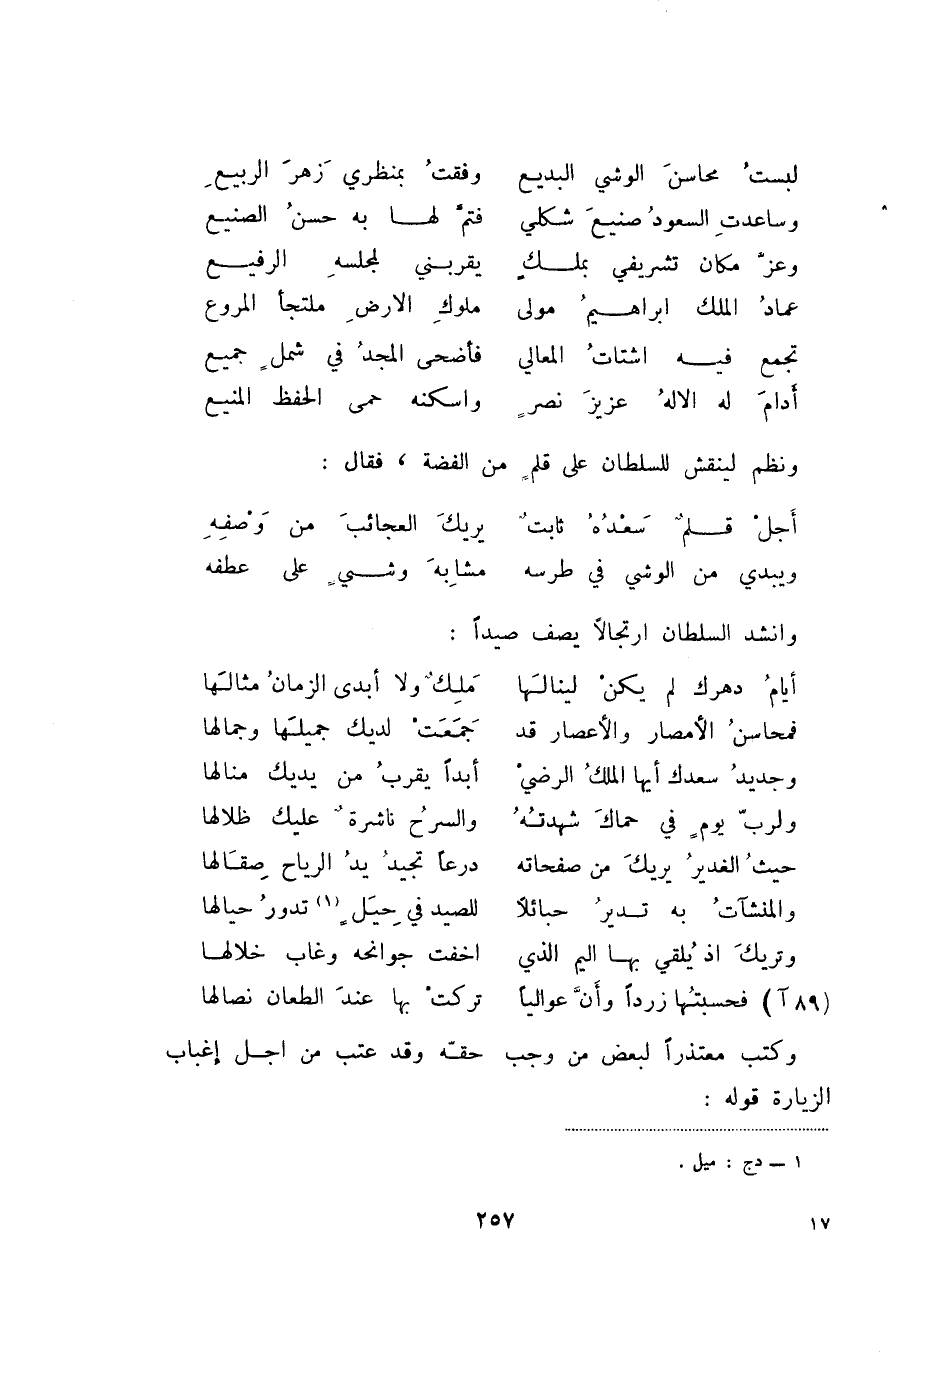 لبستُ محاسنَ الوشي البديع وفقتُ بمنظري زَهرَ الربيعِ
وساعدتِ السعودُ صنيعَ شكلي فتمَّ لهــا به حسنُ الصنيع
وعزَّ مكان تشريفي بملــكٍ يقربــني لمجلسهِ الرفيــع
عمادُ الملك ابراهيــمُ مولى ملوكِ الارضِ ملتجأ المروع
تجمع فيــه اشتاتُ المعالي فأضحى المجدُ في شملٍ جميع
أدامَ له الالهُ عزيزَ نصرٍ واسكنه حمى الحفظ المنيع
ونظم لينقش للسلطان على قلمٍ من الفضة ، فقال :
أَجلْ قــلمٌ سَعْدُهُ ثابتٌ يريكَ العجائبَ من وَصْفِهِ
ويبدي من الوشي في طرسه مشابِهَ وشــيٍ على عطفه
وانشد السلطان ارتجالاً يصف صيداً :
أيامُ دهرك لم يكنْ لينالَها مَلِكٌ ولا أبدى الزمانُ مثالَها
فمحاسنُ الأمصار والأعصار قد جَمَعَتْ لديك جميلَها وجمالها
وجديدُ سعدك أيها الملكُ الرضيْ أبداً يقربُ من يديك منالها
ولربّ يومٍ في حماكَ شهدتَهُ والسرحُ ناشرةٌ عليك ظلالها
حيثُ الغديرُ يريكَ من صفحاته درعاً تجيدُ يدُ الرياح صِقَالها
والمنشآتُ به تــديرُ حبائلاً للصيد في حِيَلٍ (١) تدورُ حيالها
وتريكَ اذ يُلقي بهــا اليم الذي اخفت جوانحه وغاب خلالهــا
(٨٩ آ) فحسبتُها زرداً وأنَّ عوالياً تركتْ بها عندَ الطعان نصالها
وكتب معتذراً لبعض من وجب حقّه وقد عتب من اجــل إغباب
الزيارة قوله :
١ – دج : ميل .
٢٥٧ ١٧